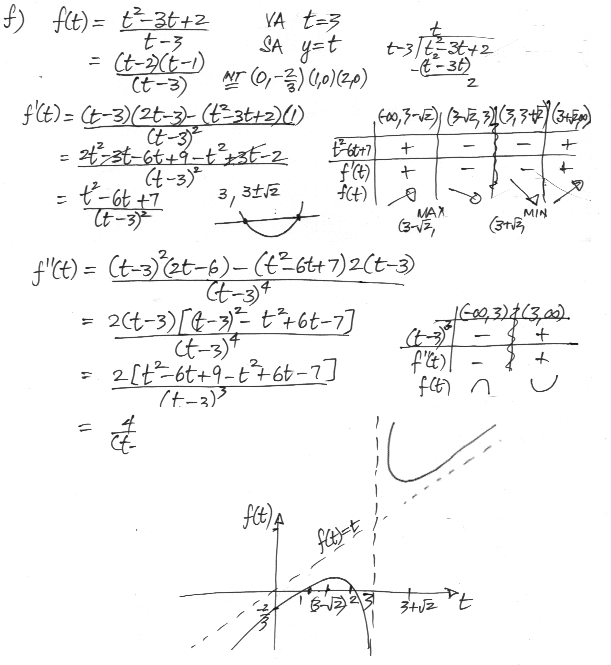 f) f(t) = (t²-3t+2)/(t-3)   VA t=3
= (t-2)(t-1)/(t-3)   SA y=t
INT (0,-2/3)(1,0)(2,0)
t
t-3 / t²-3t+2
-(t²-3t)
2
f'(t) = ((t-3)(2t-3)-(t²-3t+2)(1))/(t-3)²
= (2t²-3t-6t+9-t²+3t-2)/(t-3)²
= (t²-6t+7)/(t-3)²   3, 3±√2
(-∞,3-√2) (3-√2,3) (3,3+√2) (3+√2,∞)
t²-6t+7 + - - +
f'(t) + - - +
f(t) ↗ ↘ ↘ ↗
MAX MIN
(3-√2, (3+√2,
f''(t) = ((t-3)²(2t-6)-(t²-6t+7)2(t-3))/(t-3)⁴
= 2(t-3)[(t-3)²-t²+6t-7]/(t-3)⁴
= 2[t²-6t+9-t²+6t-7]/(t-3)³
= 4/(t-
(-∞,3) (3,∞)
(t-3)³ - +
f''(t) - +
f(t) ∩ ∪
f(t)
f(t)=t
1 (3-√2) 2 3 3+√2 t
-2/3